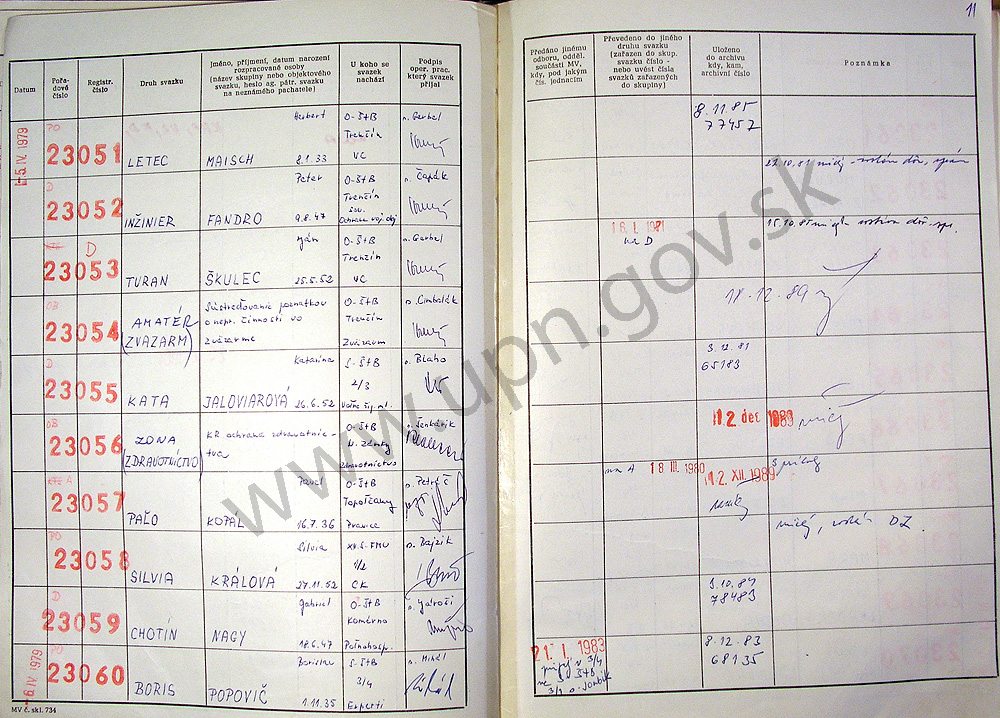 11
Datum
Pořadové číslo
Registr. číslo
Druh svazku
Jméno, příjmení, datum narození
rozpracované osoby
(název skupiny nebo objektového
svazku, heslo ag. pátr. svazku
na neznámého pachatele)
U koho se
svazek
nachází
Podpis
oper. prac.
který svazek
přijal
Předáno jinému
odboru, odděl.
součásti MV,
kdy, pod jakým
čís. jednacím
Převedeno do jiného
druhu svazku
(zařazen do skup.
svazku číslo -
nebo uvést čísla
svazků zařazených
do skupiny)
Uloženo
do archivu
kdy, kam,
archivní číslo
Poznámka
-5. IV. 1979
PO
23051 LETEC Herbert MAISCH 8.1.33 O-ŠtB Trenčín VC n. Garbel
8.11.85
77457
D
23052 INŽINIER Peter FANDRO 9.8.47 O-ŠtB Trenčín n. Čapák
22.10.81
D
23053 TURAN Ján ŠKULEC 25.5.52 O-ŠtB Trenčín VC n. Garbel
16. I. 1981
na D
15.10.85
OB
23054 AMATÉR (ZVÄZARM) Sústreďovanie poznatkov
o nepr. činnosti vo
Zväzarme
O-ŠtB Trenčín Zväzarm n. Cimbalák
18.12.89
D
23055 KATA Katarína JALOVIAROVÁ 26.6.52 S-ŠtB 2/3 n. Blaho
3.12.81
65183
OB
23056 ZDNA (ZDRAVOTNÍCTVO) KR ochrana zdravotníctva O-ŠtB N. Zámky Zdravotníctvo
12. dec 1989
A
23057 PAĽO Pavel KOPÁL 16.7.36 O-ŠtB Topoľčany
na A 18 III. 1980
12. XII. 1989
PO
23058 SILVIA Silvia KRÁLOVÁ 27.11.52 XII.S-FMV 1/2 CK n. Bajzík
D
23059 CHOTÍN Gabriel NAGY 18.6.47 O-ŠtB Komárno Poľnohosp. n. Jároši
3.10.84
78483
-6. IV. 1979
PO
23060 BORIS Borislav POPOVIČ 1.11.35 S-ŠtB 3/4 Experti n. Mihál
21. I. 1983
8.12.83
68135
MV č. skl. 734
www.upn.gov.sk